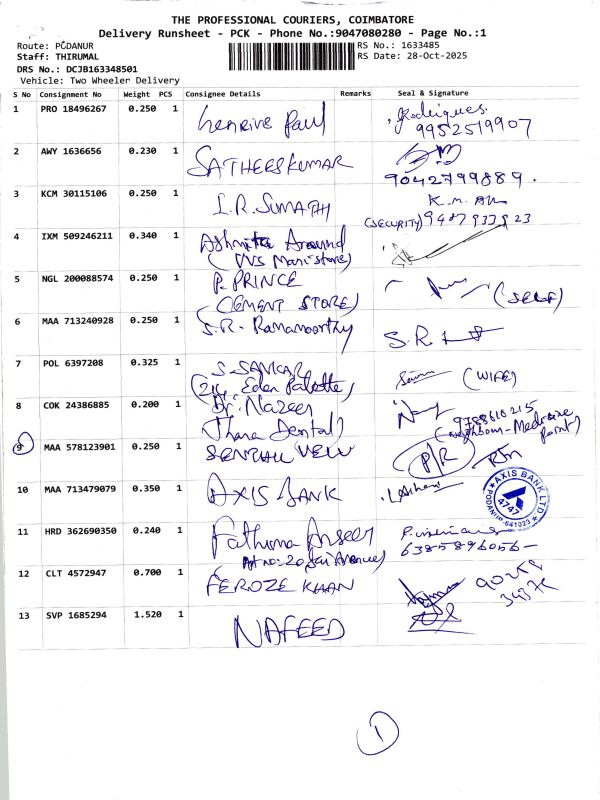 THE PROFESSIONAL COURIERS, COIMBATORE
Delivery Runsheet - PCK - Phone No.:9047080280 - Page No.:1
Route: PODANUR
RS No.: 1633485
Staff: THIRUMAL
RS Date: 28-Oct-2025
DRS No.: DCJB163348501
Vehicle: Two Wheeler Delivery
S No Consignment No Weight PCS Consignee Details Remarks Seal & Signature
1 PRO 18496267 0.250 1 Paul
9952519907
2 AWY 1636656 0.230 1 SATHEESKUMAR
9042799889.
3 KCM 30115106 0.250 1 I.R.SUMATHI K.M.
(SECURITY) 9487933923
4 IXM 509246211 0.340 1 Ashmita Around
(VVS Mani store)
5 NGL 200088574 0.250 1 P. PRINCE (SELF)
(CEMENT STORE)
6 MAA 713240928 0.250 1 S.R. Ramamoorthy S.R.
7 POL 6397208 0.325 1 S. SANKAR (WIFE)
Eden Palette)
8 COK 24386885 0.200 1 Dr. Nazeer 9788610215
Dental) (Neighbour-Medicine Point)
9 MAA 578123901 0.250 1 SENTHIL VELU P/R Rtn
10 MAA 713479079 0.350 1 AXIS BANK
AXIS BANK LTD
4747
PODANUR 641023
11 HRD 362690350 0.240 1 Fathima Anseer
6385896056
12 CLT 4572947 0.700 1 FEROZE KHAN
13 SVP 1685294 1.520 1 NAFEED
1